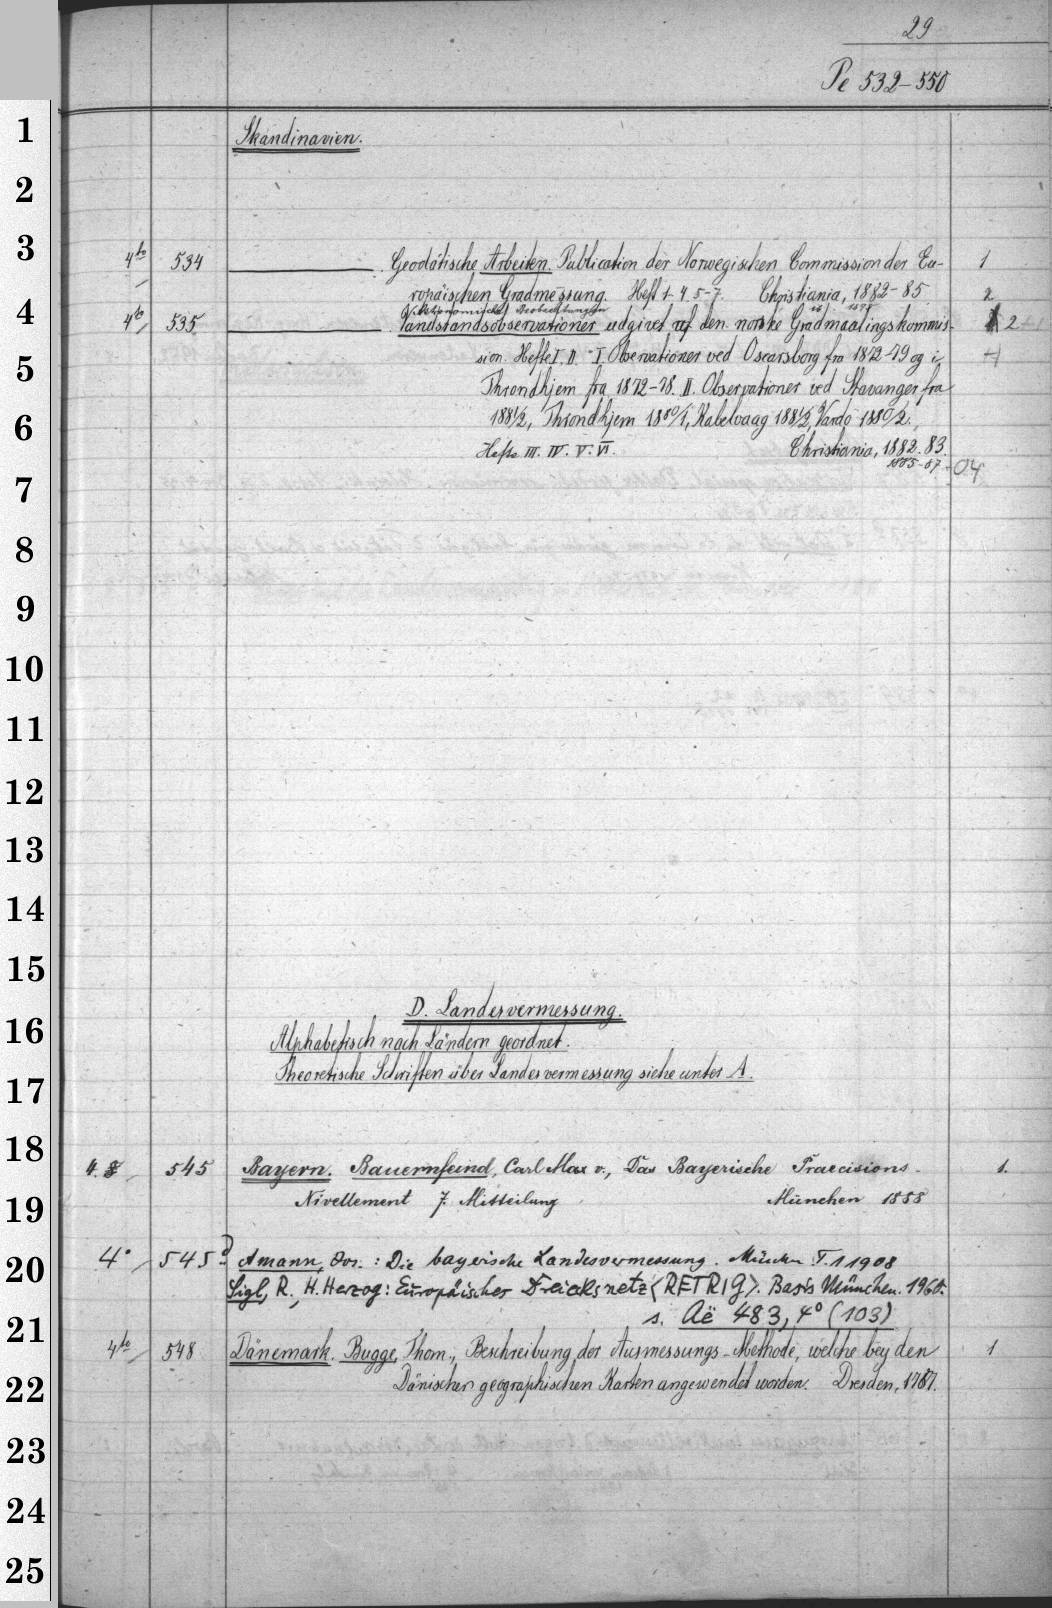 29
Pe 532-550
1
Skandinavien.
2
3
4to 534 Geodätische Arbeiten. Publication der Norwegischen Commission der Eu- 1
ropäischen Gradmessung. Heft 1-4. 5-7. Christiania, 1882-85 2
4
4to 535 Vandstandsobservationer udgivet den norske Gradmaalingskommis- 2 + 1
5
sion. Hefte I, II. I. Observationer ved Oscarsborg fra 1872-79 og i
Throndhjem fra 1872-78. II. Observationer ved Stavanger fra
6
1881/2, Throndhjem 1880/1, Kabelvaag 1881/2, Vardö 1880/2.
Hefte III. IV. V. VI. Christiania, 1882. 83.
1885-87-04
7
8
9
10
11
12
13
14
15
D. Landesvermessung.
16
Alphabetisch nach Ländern geordnet.
Theoretische Schriften über Landesvermessung siehe unter A.
17
18
4. 545 Bayern. Bauernfeind, Carl Max v., Das Bayerische Praecisions- 1.
19
Nivellement 7. Mitteilung München 1888
20
4° 545 Amann, Jos.: Die bayerische Landesvermessung. München T. 1 1908
Sigl, R., H. Herzog: Europäisches Dreiecksnetz <RETRIG>. Basis München. 1960.
s. Aë 483, 4° (103)
21
4to 548 Dänemark. Bugge, Thom., Beschreibung der Ausmessungs-Methode, welche bey den 1
22
Dänischen geographischen Karten angewendet worden. Dresden, 1787.
23
24
25